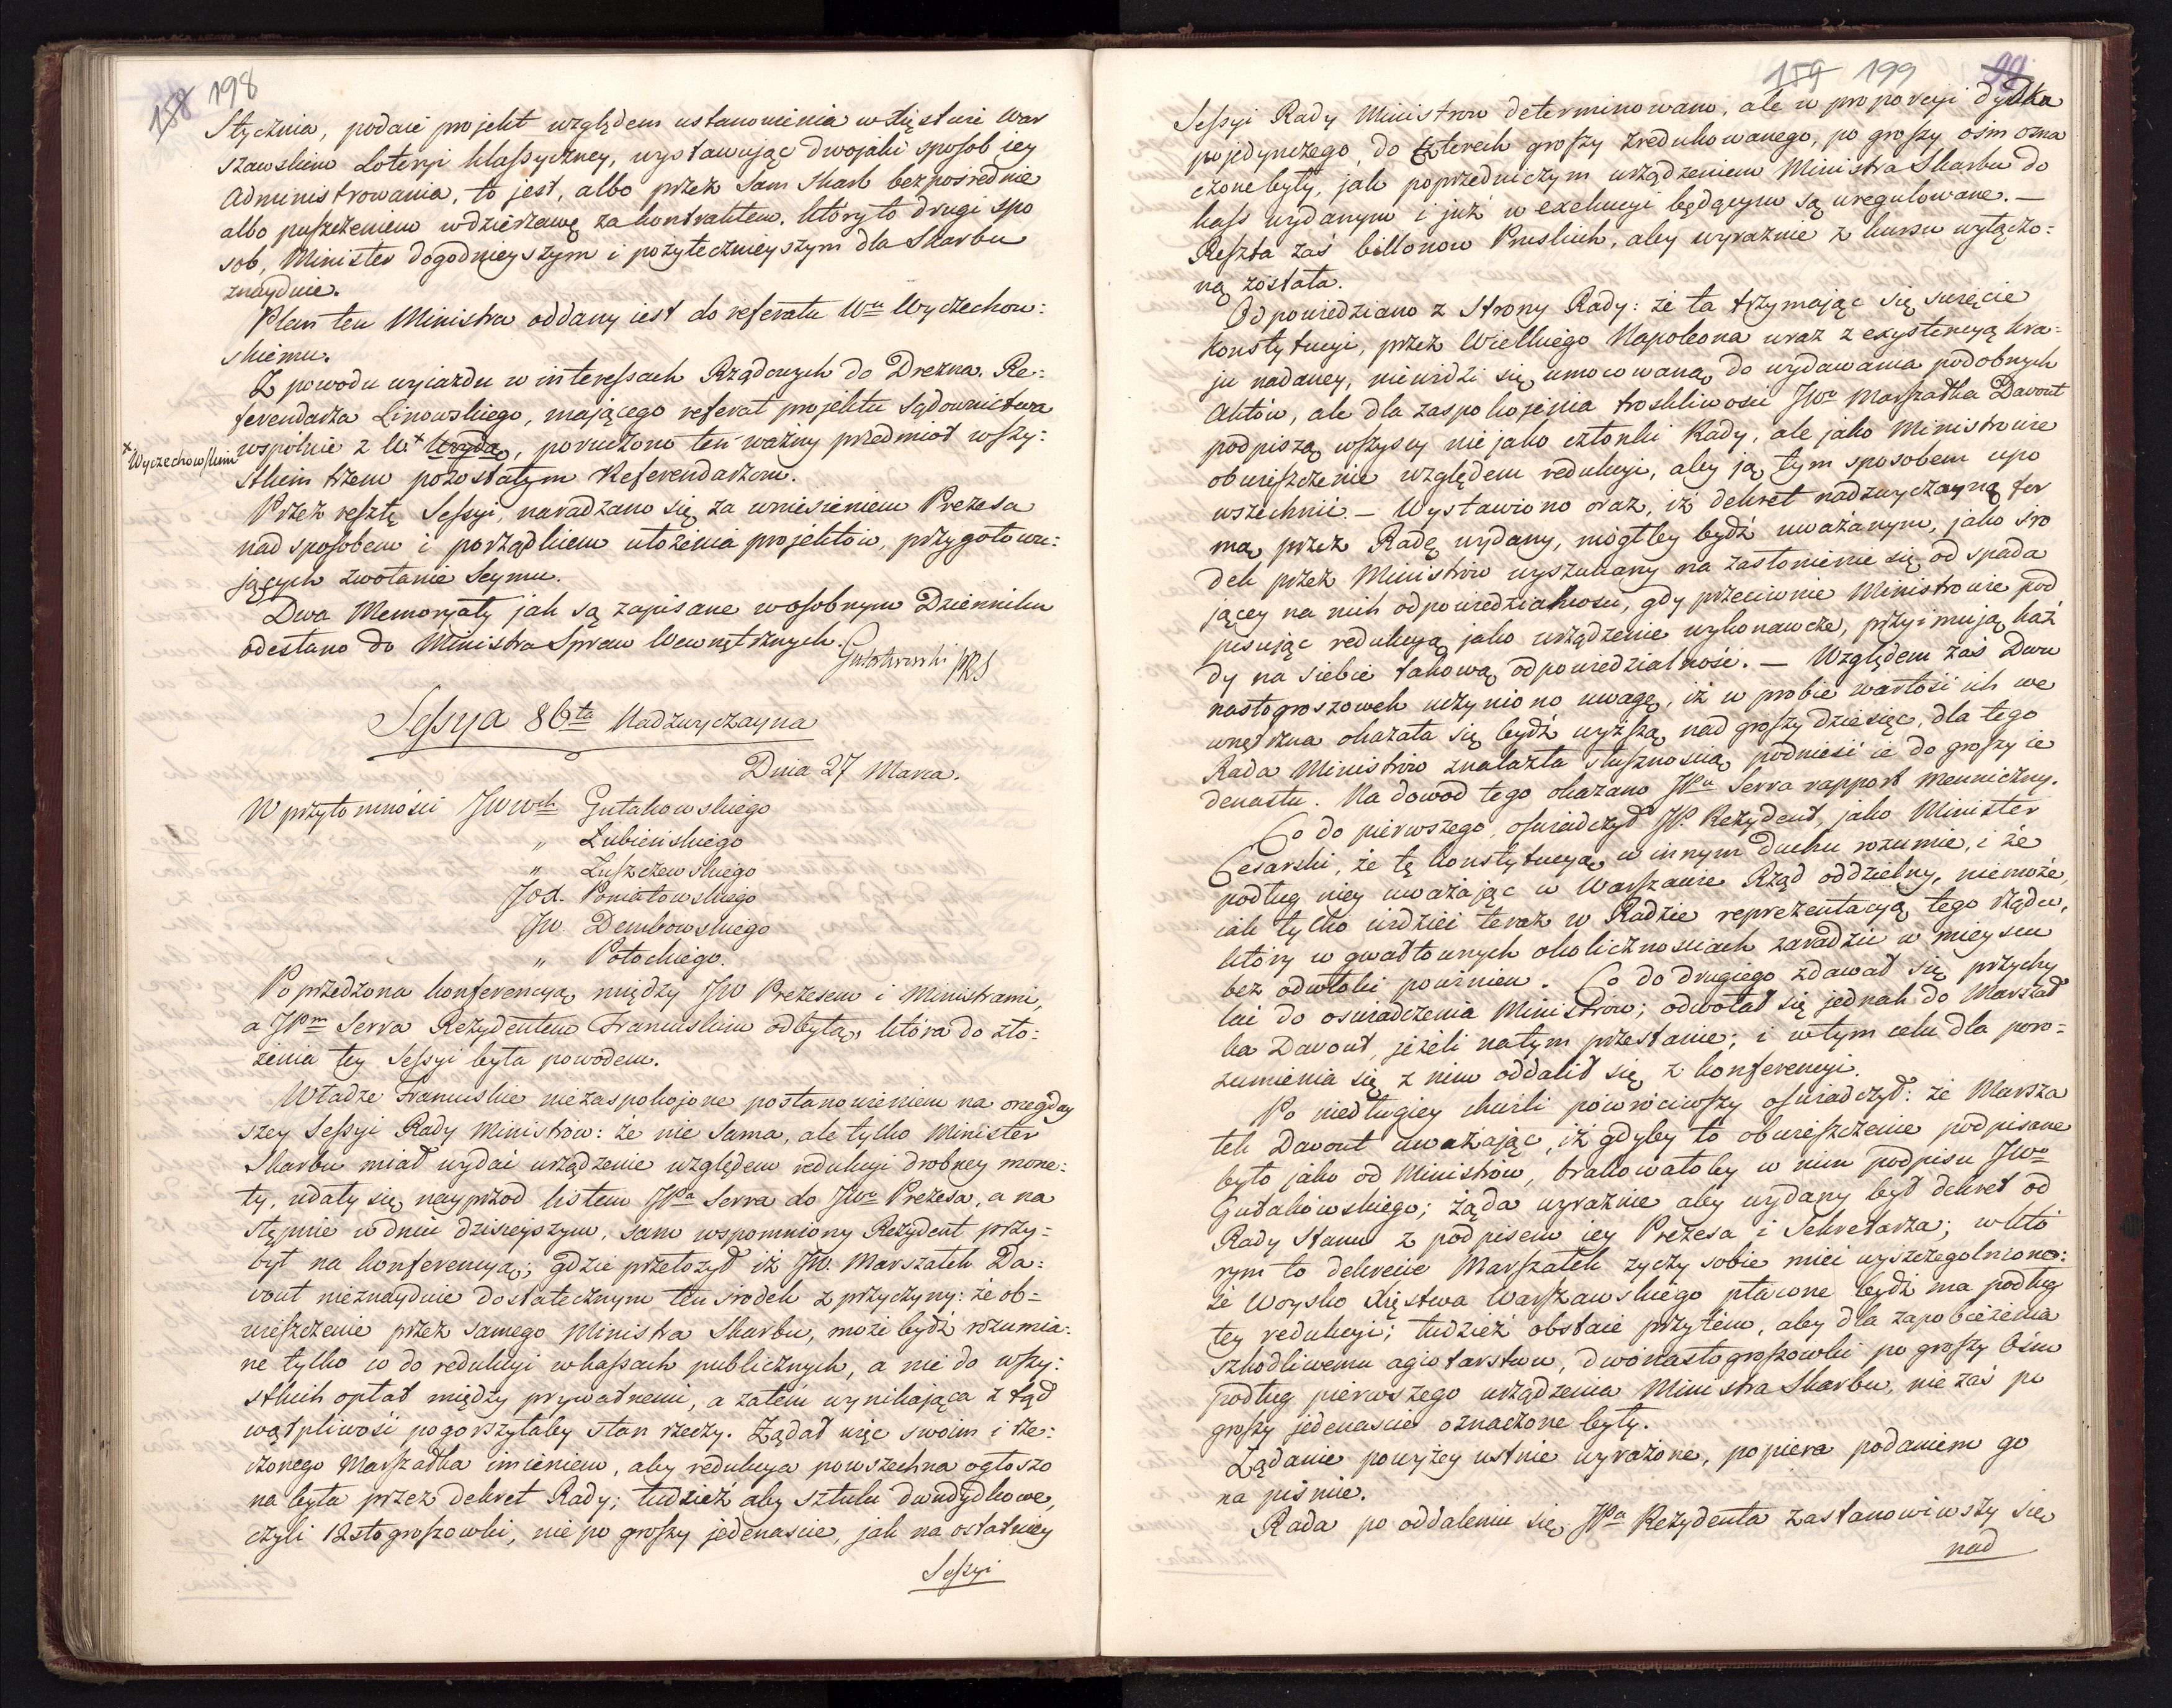 158 198
Stycznia, podaie projekt względem ustanowienia w Xięstwie War
szawskiem Loteryi klassyczney, wystawując dwojaki sposob iey
Administrowania, to jest, albo przez sam Skarb bezposrednie
albo puszczeniem w dzierzawę za kontraktem. który to drugi spo
sob, Minister dogodnieyszym i pożytecznieyszym dla Skarbu
znayduie.
Plan ten Ministra oddany iest do referatu Wu Wyczechow:
skiemu.
Z powodu wyiazdu w interessach Rządowych do Drezna. Re:
ferendarza Linowskiego, mającego referat projektu sądownictwa
wspolnie z W. + Woyda, poruczono ten ważny przedmiot wszy:
+ Wyczechowskim
stkim trzem pozostałym Referendarzom.
Przez resztę Sessyi, naradzano się za wniesieniem Prezesa
nad sposobem i porządkiem ułożenia projektów, przygotowu:
jących zwołanie Seymu.
Dwa Memoryały jak są zapisane w osobnym Dzienniku
odesłano do Ministra Spraw Wewnętrznych.
Gutakowski PRS
Sessya 86ta Nadzwyczayna
Dnia 27 Marca.
W przytomności JWWch Gutakowskiego
" Łubieńskiego
" Łuszczewskiego
JOX. Poniatowskiego
JW Dembowskiego
" Potockiego.
Poprzedzona konferencyą między JW Prezesem i Ministrami,
a JPm Serra Rezydentem Francuskim odbytą, która do zło:
żenia tey Sessyi była powodem.
Władze Francuskie niezaspokojone postanowieniem na onegday
szey Sessyi Rady Ministrów: że nie sama, ale tylko Minister
Skarbu miał wydać urządzenie względem redukcyi drobney mone:
ty, udały się nayprzod listem JPa Serra do JWo Prezesa, a na
stępnie w dniu dzisieyszym, sam wspomniony Rezydent przy:
był na konferencyą; gdzie przełożył iż JW. Marszałek Da:
vout nieznayduie dostatecznym ten srodek z przyczyny: że ob=
wieszczenie przez samego Ministra Skarbu, może bydź rozumia:
ne tylko co do redukcyi w kassach publicznych, a nie do wszy:
stkich opłat między prywatnemi, a zatém wynikająca z tąd
wątpliwość pogorszyłaby stan rzeczy. Żądał więc swoim i rze:
czonego Marszałka imieniem, aby redukcya powszechna ogłoszo
na była przez dekret Rady; tudzież aby sztuki dwudydkowe,
czyli 12stogroszowki, nie po groszy jedenascie, jak na ostatniey
Sessyi
159 199 99
Sessyi Rady Ministrow determinowano, ale w proporcyi dydka
pojedynczego, do czterech groszy zredukowanego, po groszy ośm ozna
czone były, jak poprzedniczym urządzeniem Ministra Skarbu do
kass wydanym i już w exekucyi będącym są uregulowane. —
Reszta zaś billonow Pruskich, aby wyraźnie z kursu wyłączo:
ną została.
Odpowiedziano z Strony Rady: że ta trzymając się święcie
Konstytucyi, przez Wielkiego Napoleona wraz z exystencyą kra:
ju nadaney, niewidzi się umocowaną do wydawania podobnych
Aktów, ale dla zaspokojenia troskliwości JWo Marszałka Davout
podpiszą wszyscy nie jako członki Rady, ale jako Ministrowie
obwieszczenie względem redukcyi, aby ją tym sposobem upo
wszechnić. — Wystawiono oraz, iż dekret nadzwyczayną for
mą przez Radę wydany, mógłby bydź uważanym, jako śro
dek przez Ministrów wyszukany na zasłonienie się od spada
jącey na nich odpowiedzialności, gdy przeciwnie Ministrowie pod
pisując redukcyą jako urządzenie wykonawcze, przyimują każ
dy na siebie takową odpowiedzialność. — Względem zaś Dwu
nastogroszowek uczyniono uwagę, iż w probie wartość ich we
wnętrzna okazała się bydź wyższą nad groszy dziesięć, dla tego
Rada Ministrów znalazła słusznością podnieść ie do groszy ie
denastu. Na dowod tego okazano JPu Serra rapport menniczny.
Co do pierwszego, oświadczył JP. Rezydent, jako Minister
Cesarski, że tę konstytucyą w innym duchu rozumie, i że
podług niey uważając w Warszawie Rząd oddzielny, niemoże,
iak tylko widzieć teraz w Radzie reprezentacyą tego rządu,
który w gwałtownych okolicznosciach zaradzić w mieyscu
bez odwłoki powinien. Co do drugiego zdawał się przychy
lać do oswiadczenia Ministrow; odwołał się jednak do Marszał
ka Davout, jeżeli natym przestanie; i w tym celu dla poro=
zumienia się z nim oddalił się z konferencyi.
Po niedługiey chwili powróciwszy oświadczył: że Marsza
łek Davout uważając, iż gdyby to obwieszczenie podpisane
było jako od Ministrów, brakowałoby w nim podpisu JWo
Gutakowskiego; żąda wyraźnie aby wydany był dekret od
Rady Stanu z podpisem iey Prezesa i Sekretarza; w któ
rym to dekrecie Marszałek życzy sobie mieć wyszczegolniono:
że Woysko Xięstwa Warszawskiego płacone bydź ma podług
tey redukcyi; tudzież obstaie przytém, aby dla zapobieżenia
szkodliwemu agiotarstwu, dwónastogroszowki po groszy Ośm
podług pierwszego urządzenia Ministra Skarbu, nie zaś po
groszy jedenascie oznaczone były.
Żądanie powyżey ustnie wyrażone, popiera podaniem go
na piśmie.
Rada po oddaleniu się JPa Rezydenta zastanowiwszy się
nad